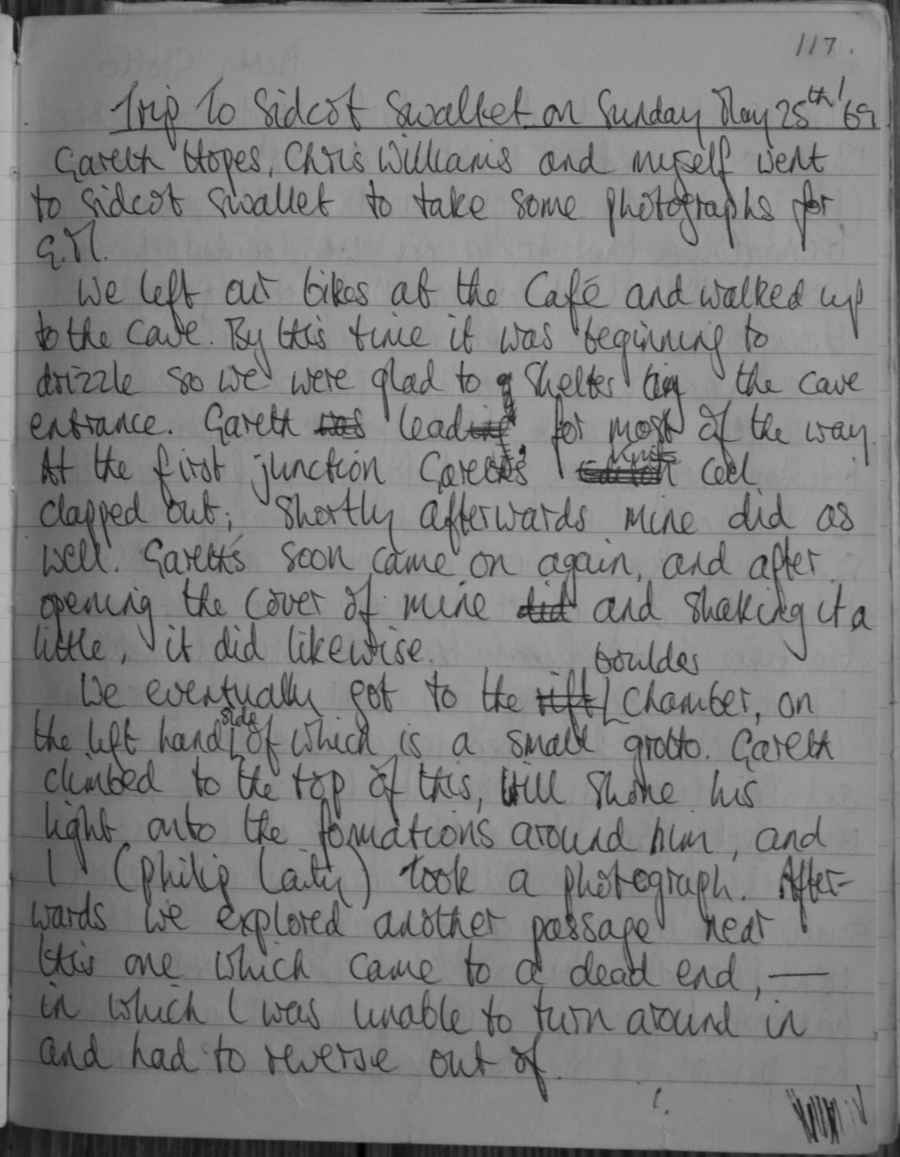 117.
Trip To Sidcot Swallet on Sunday May 25th '69
Gareth Hopes, Chris Williams and myself went
to Sidcot Swallet to take some photographs for
G.M.
We left our bikes at the Café and walked up
to the cave. By this time it was beginning to
drizzle so we were glad to shelter in the cave
entrance. Gareth lead for most of the way.
At the first junction Gareth's cell
clapped out; shortly afterwards mine did as
well. Gareth's soon came on again, and after
opening the cover of mine did and shaking it a
little, it did likewise.
We eventually got to the rift boulder chamber, on
the left hand side of which is a small grotto. Gareth
climbed to the top of this, Will shone his
light onto the formations around him, and
I (Philip Laity) took a photograph. After-
wards we explored another passage near
this one which came to a dead end, —
in which I was unable to turn around in
and had to reverse out of.